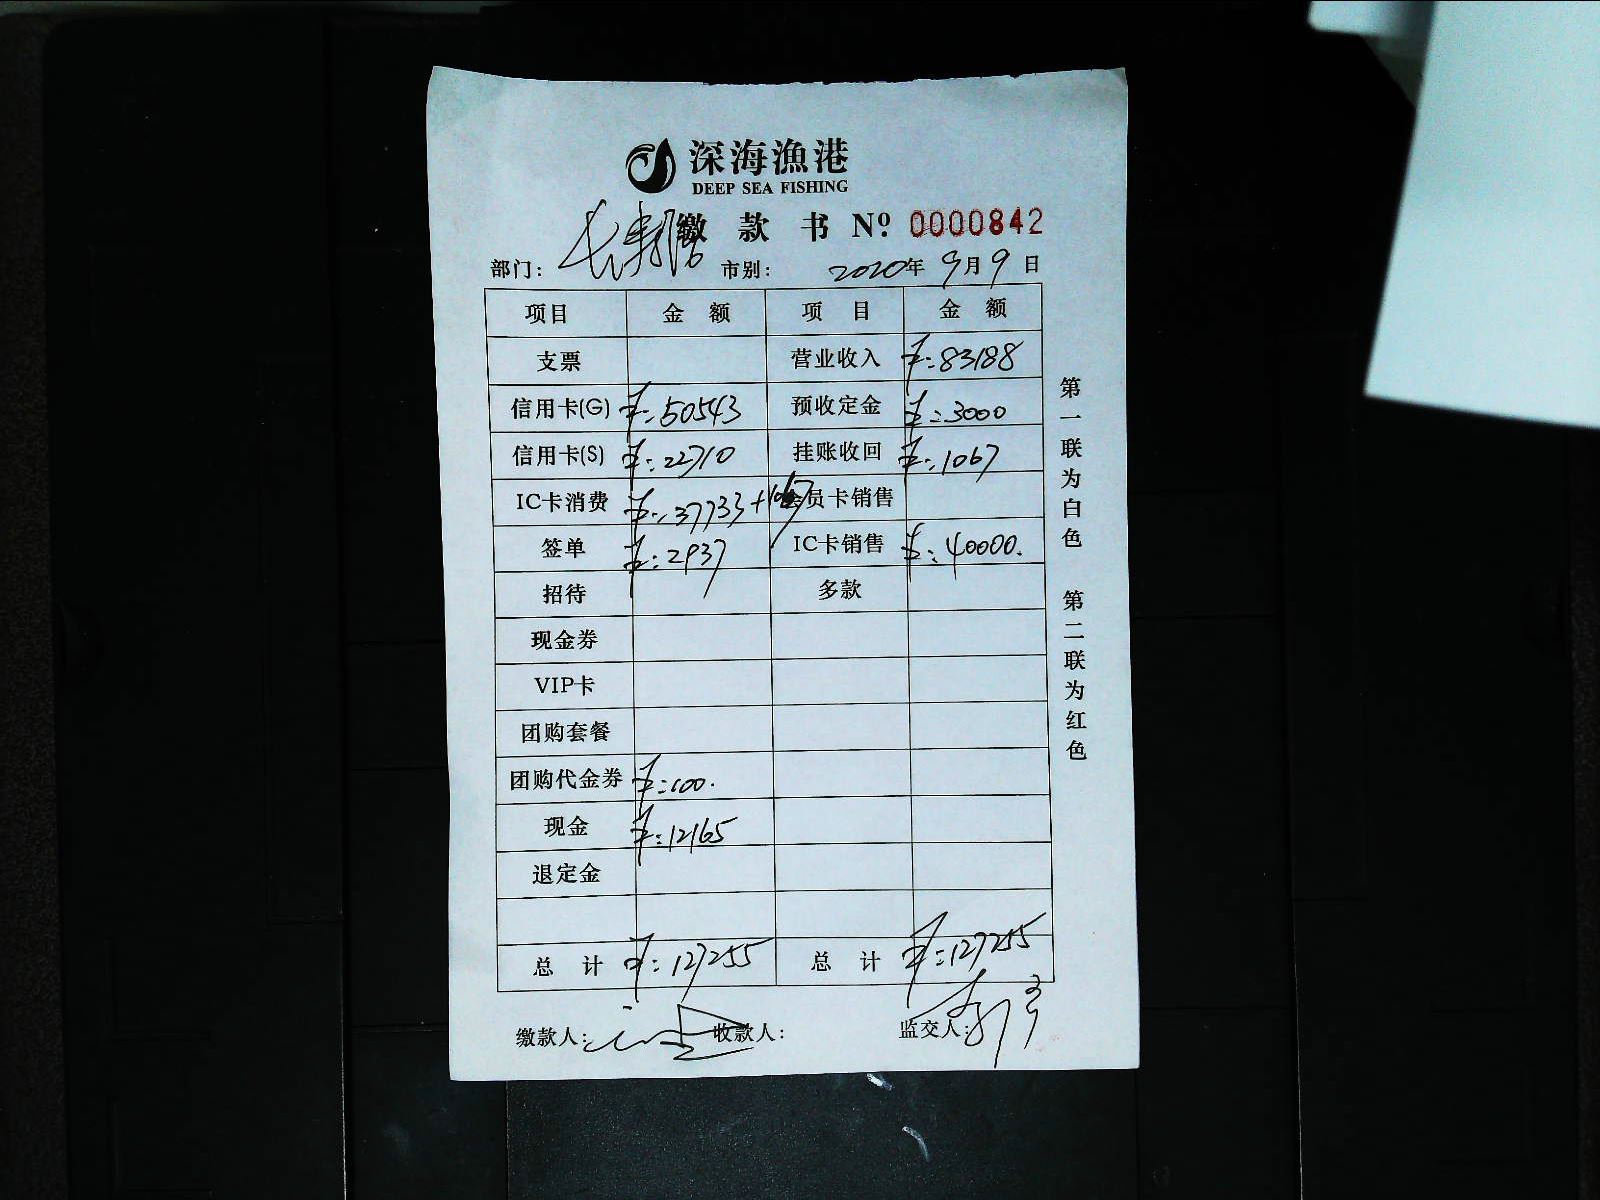 深海漁港
DEEP SEA FISHING
缴款书 Nº 0000842
部门： 市别： 2020年9月9日
项目 金额 项目 金额
支票 营业收入 ¥:83188
信用卡(G) ¥:50543 预收定金 ¥:3000
信用卡(S) ¥:22710 挂账收回 ¥:1067
IC卡消费 ¥:37733+1067 会员卡销售
签单 ¥:2937 IC卡销售 ¥:40000.
招待 多款
现金券
VIP卡
团购套餐
团购代金券 ¥:100.
现金 ¥:12165
退定金
总计 ¥:127255 总计 ¥:127255
缴款人： 收款人： 监交人：
第一联为白色 第二联为红色